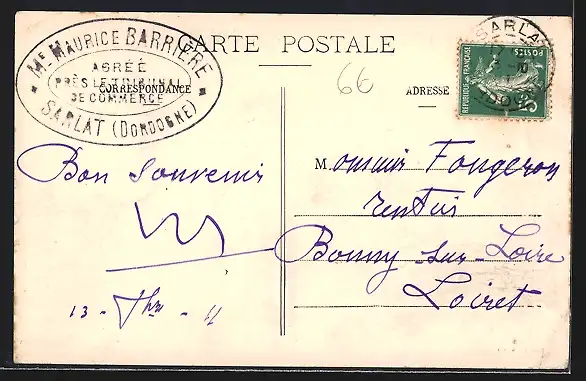 CARTE POSTALE
Me MAURICE BARRIÈRE
AGRÉÉ
PRÈS LE TRIBUNAL
DE COMMERCE
SARLAT (DORDOGNE)
CORRESPONDANCE
ADRESSE
66
SARLAT
RÉPUBLIQUE FRANÇAISE
POSTES
5
Bon souvenir
13 - 11
Monsieur Fougeron
rentier
Bonny sur Loire
Loiret